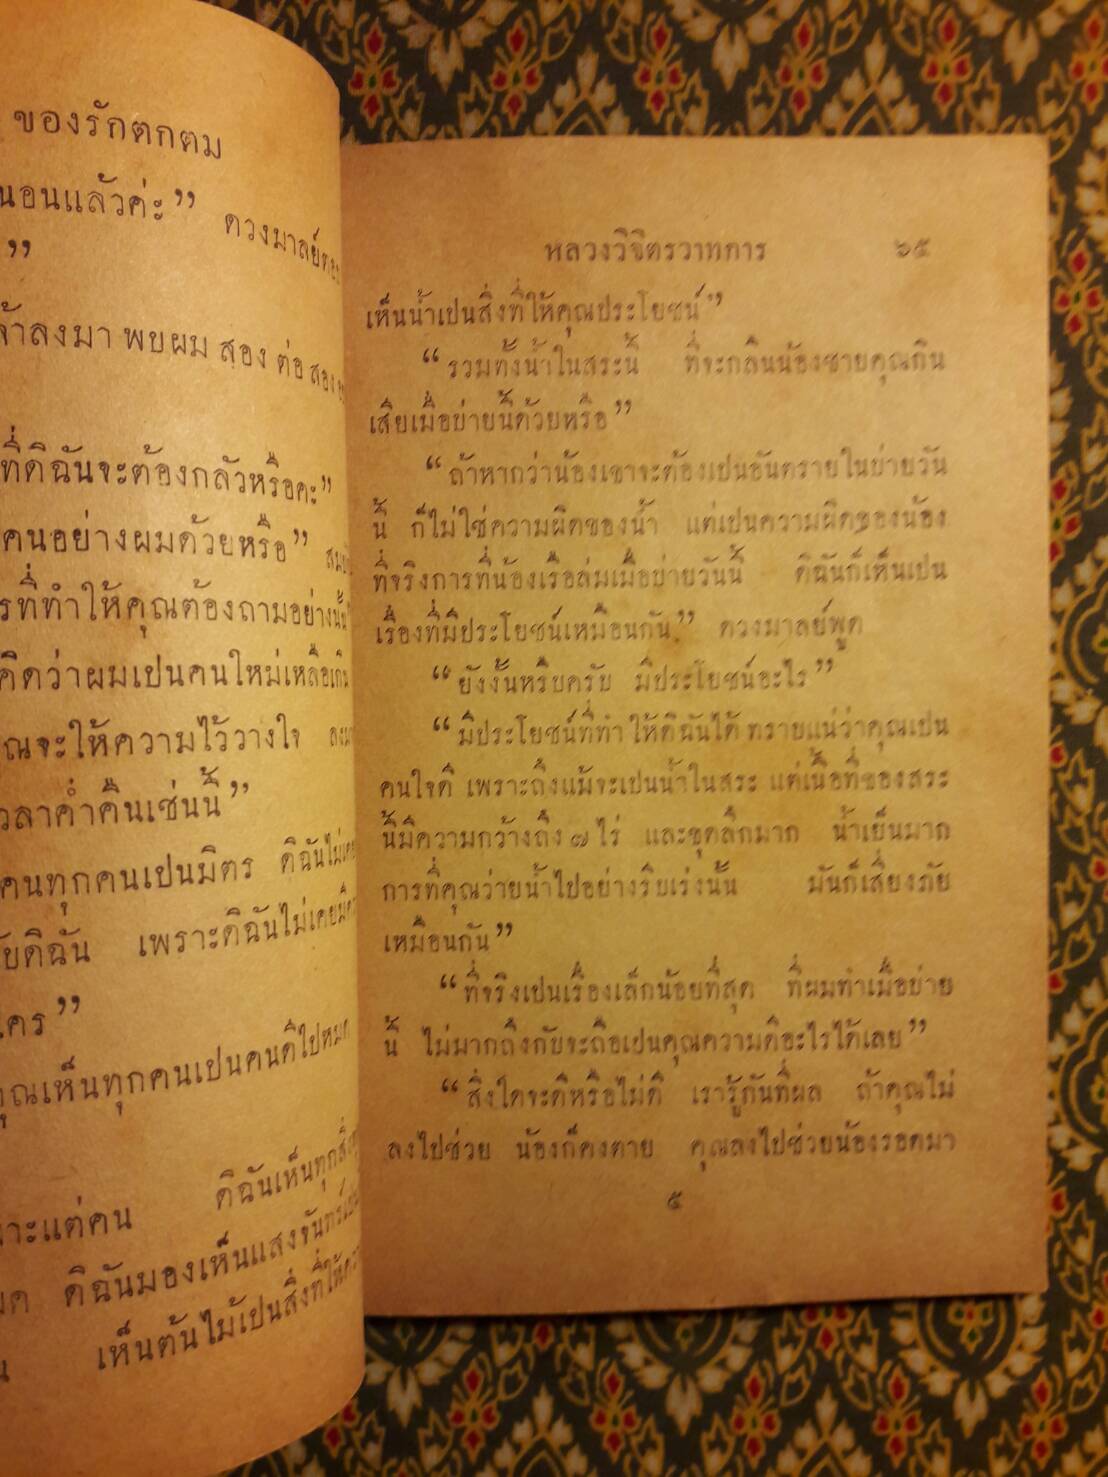 ของรักตกตม
นอนแล้วค่ะ” ดวงมาลย์ตอบ
”
ลงมา พบผม สอง ต่อ สอง
ที่ดิฉันจะต้องกลัวหรือคะ”
คนอย่างผมด้วยหรือ”
ที่ทำให้คุณต้องถามอย่างนั้น
คิดว่าผมเปนคนใหม่เหลือเกิน
จะให้ความไว้วางใจ
เวลาค่ำคืนเช่นนี้”
คนทุกคนเปนมิตร ดิฉันไม่เคย
ดิฉัน เพราะดิฉันไม่เคยมี
ใคร”
คุณเห็นทุกคนเปนคนดีไปหมด
แต่คน ดิฉันเห็นทุกสิ่ง
ดิฉันมองเห็นแสงจันทร์เปน
เห็นต้นไม้เปนสิ่งที่ให้
หลวงวิจิตรวาทการ ๖๕
เห็นน้ำเปนสิ่งที่ให้คุณประโยชน์”
“รวมทั้งน้ำในสระนี้ ที่จะกลืนน้องชายคุณกิน
เสียเมื่อบ่ายนี้ด้วยหรือ”
“ถ้าหากว่าน้องเขาจะต้องเปนอันตรายในบ่ายวัน
นี้ ก็ไม่ใช่ความผิดของน้ำ แต่เปนความผิดของน้อง
ที่จริงการที่น้องเรือล่มเมื่อบ่ายวันนี้ ดิฉันก็เห็นเปน
เรื่องที่มีประโยชน์เหมือนกัน” ดวงมาลย์พูด
“ยังงั้นหรือครับ มีประโยชน์อะไร”
“มีประโยชน์ที่ทำให้ดิฉันได้ทราบแน่ว่าคุณเปน
คนใจดี เพราะถึงแม้จะเปนน้ำในสระ แต่เนื้อที่ของสระ
นี้มีความกว้างถึง ๗ ไร่ และขุดลึกมาก น้ำเย็นมาก
การที่คุณว่ายน้ำไปอย่างรีบเร่งนั้น มันก็เสี่ยงภัย
เหมือนกัน”
“ที่จริงเปนเรื่องเล็กน้อยที่สุด ที่ผมทำเมื่อบ่าย
นี้ ไม่มากถึงกับจะถือเปนคุณความดีอะไรได้เลย”
“สิ่งใดจะดีหรือไม่ดี เรารู้กันที่ผล ถ้าคุณไม่
ลงไปช่วย น้องก็คงตาย คุณลงไปช่วยน้องรอดมา
๕